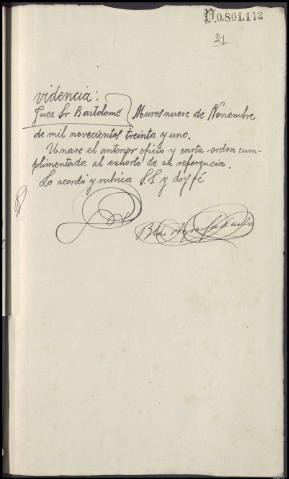 O.801.113
21
videncia:
Juez Sr Bartolomé } Muros nueve de Novembre
de mil novecientos treinta y uno.
Unase el anterior oficio y carta-orden cum-
plimentada al exhorto de su referencia.
Lo acordó y rubrica S.S y doy fé